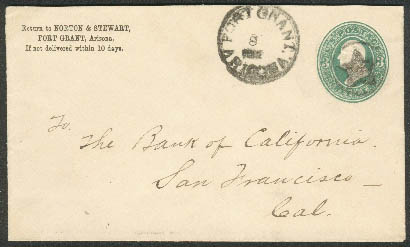 Return to NORTON & STEWART,
FORT GRANT, Arizona.
If not delivered within 10 days.
FORT GRANT. A.
8
ARIZONA
To.
The Bank of California.
San Francisco
Cal.